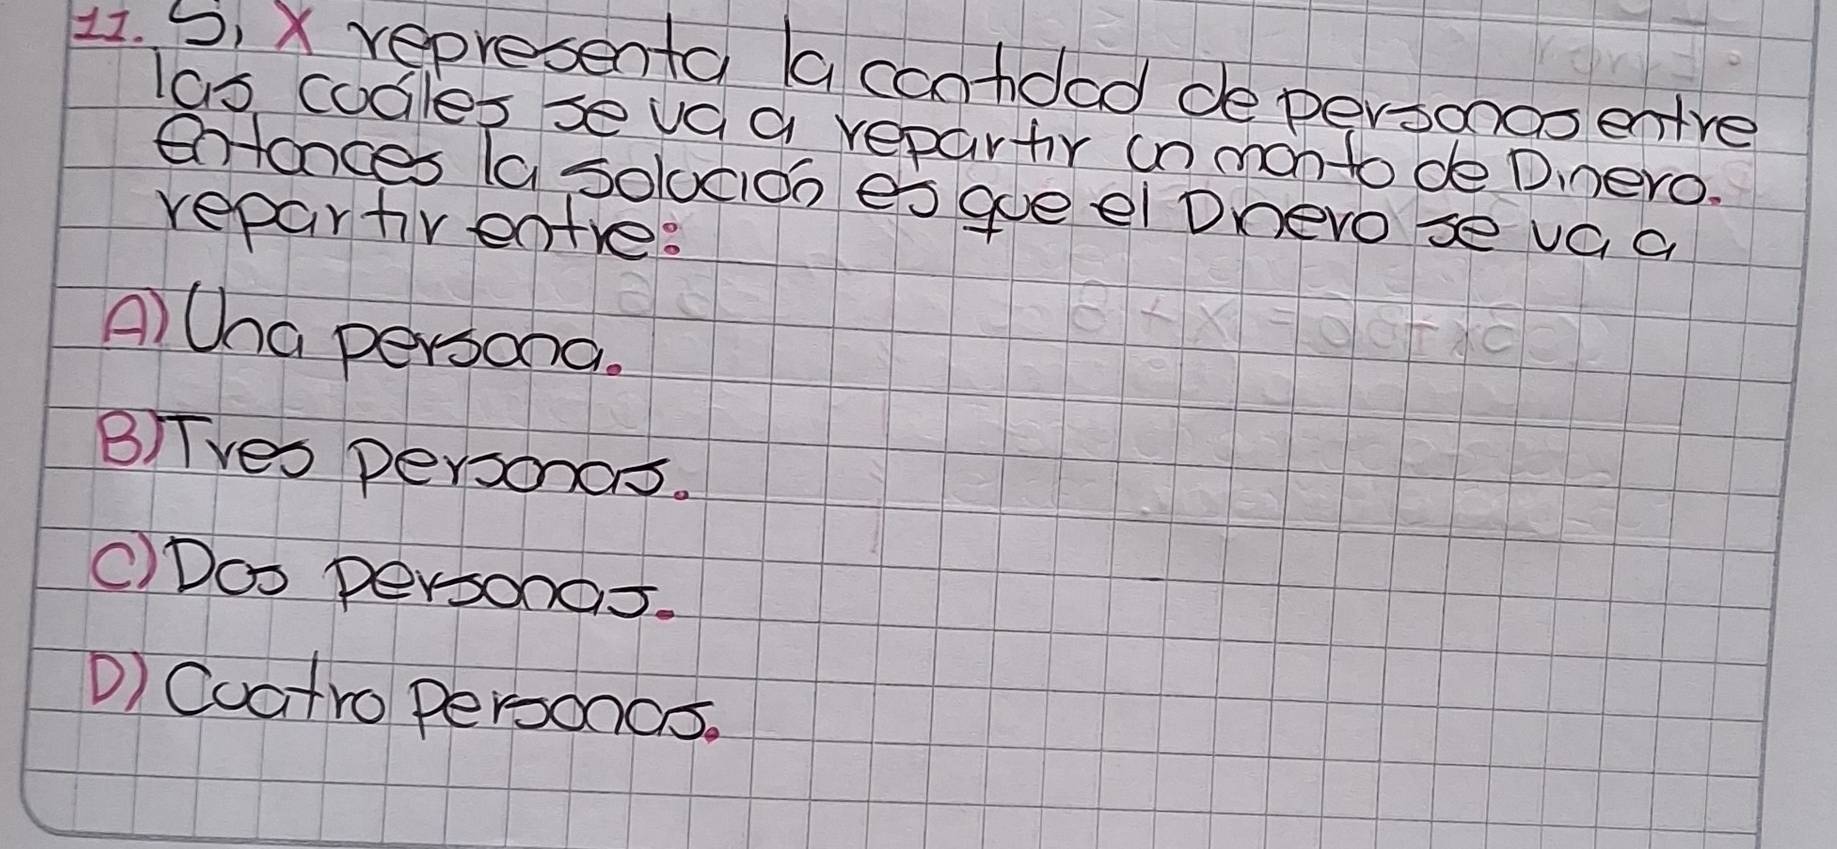 11. Si X representa la cantidad de personas entre
las cuáles se va a repartir un monto de Dinero.
entonces la solución es que el Dinero se va a
repartir entre:
A) Una persona.
B) Tres personas.
C) Dos personas.
D) Cuatro personas.